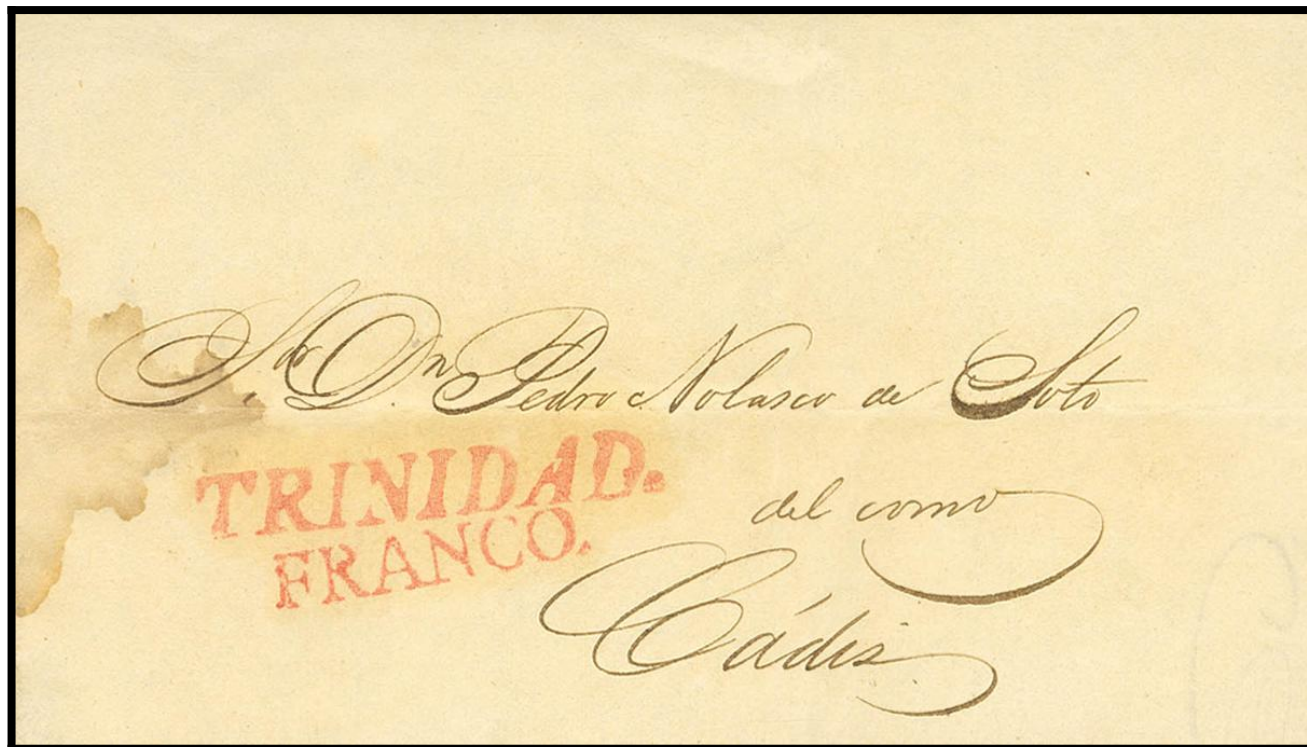 Sor Dn Pedro Nolasco de Soto
TRINIDAD.
FRANCO.
del como
Cádiz